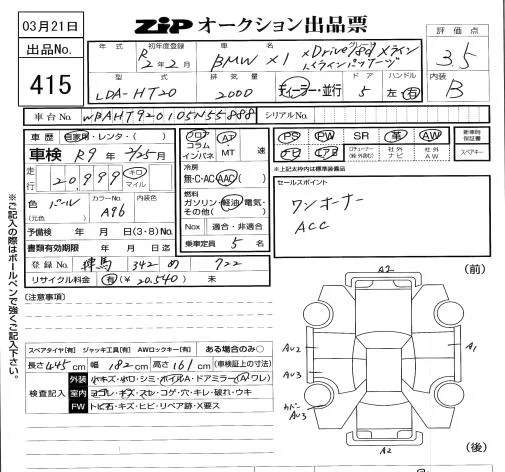 03月21日
ZiPオークション出品票
評価点
3.5
出品No.
415
年式
初年度登録
R 2年2月
車名
BMW X1 xDrive18d xライン
ハイラインパッケージ
内装
B
型式
LDA-HT20
排気量
2000
ディーラー・並行
ドア
5
ハンドル
左・右
車台No.
WBAHT920105N55888
シリアルNo.
車歴 自家用・レンタ・( )
車検 R9年 2/25月
走行
20,999
キロ
マイル
色
(元色)
パール
カラーNo.
A96
内装色
予備検 年 月 日(3・8)No.
書類有効期限 年 月 日迄
登録No. 練馬 342 め 722
リサイクル料金 有(¥ 20,540) 未
フロア
コラム
インパネ
AT
・
MT
速
冷房
無・C・AC・AAC( )
燃料
ガソリン・軽油・電気・
その他( )
Nox 適合・非適合
乗車定員 5 名
PS
PW
SR
革
AW
新車時
保証書
ナビ
エアB
社外
ナビ
社外
AW
スペアキー
*上記太枠内は標準装備品
セールスポイント
ワンオーナー
ACC
※ご記入の際はボールペンで強くご記入下さい。
(注意事項)
スペアタイヤ[有] ジャッキ工具[有] AWロックキー[有] ある場合のみ○
長さ445cm 幅 182cm 高さ161cm (車検証上の寸法)
検査記入
外装 小キズ・小凹・シミ・ホイルA・ドアミラー(A・ワレ)
室内 ヨゴレ・キズ・スレ・コゲ・穴・キレ・破れ・ウキ
FW トビ石・キズ・ヒビ・リペア跡・X要ス
(前)
A2
AU2
A1
AU3
カバー
AU3
A2
(後)